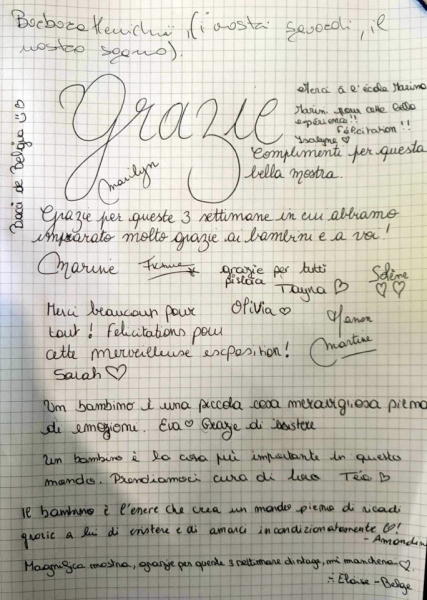 (i nostri
nostro sogno).
Baci de Belgio
grazie
Marilyn
Merci à l'école Marino
Marini pour cette belle
expérience!!
Félicitation!!
Complimenti per questa
bella mostra.
Grazie per queste 3 settimane in cui abbiamo
imparato molto grazie ai bambini e a voi!
Marine
grazie per tutti
Tayna ♡
Solène
♡♡
Merci beaucoup pour
tout! Félicitations pour
cette merveilleuse exposition!
Sarah ♡
Olivia ♡
Manon
Martine
Un bambino è una piccola cosa meravigliosa piena
di emozione. Eva ♡ Grazie di esistere
Un bambino è la cosa più importante in questo
mondo. Prendiamoci cura di loro Téa ♡
Il bambino è l'enere che crea un mondo pieno di
grazie a lui di esistere e di amarci incondizionatamente ♡!
- Amandine
Magnifica mostra, grazie per queste 3 settimane di stage, mi mancherà ♡.
Eloïse - Belge